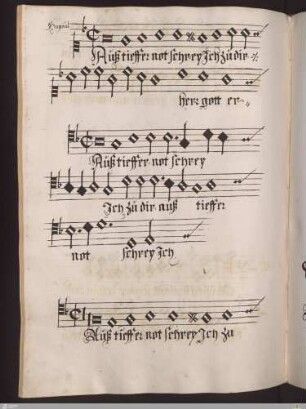 Auß tieffer not schrey Ich zů dir
herr gott er
Auß tieffer not schrey
Ich zů dir auß tieffer
not schrey Ich
Auß tieffer not schrey Ich zu